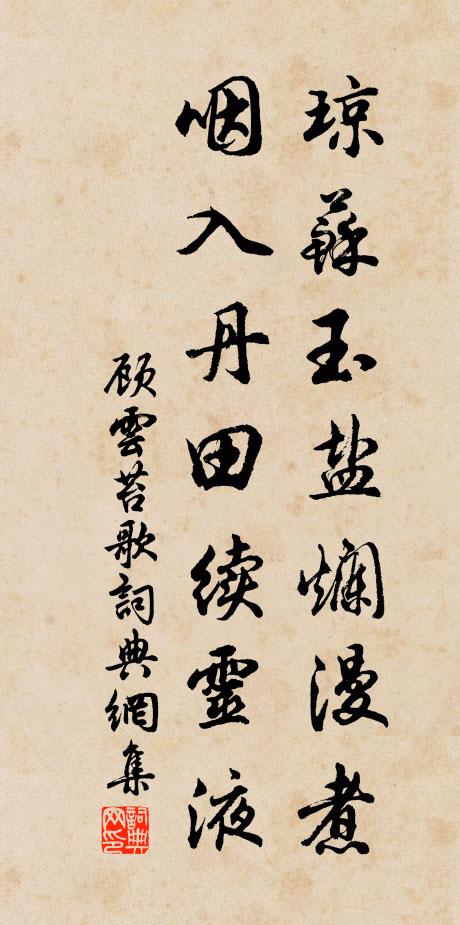 琼蘇玉盐烂漫煮
咽入丹田续靈液
顾雲苔歌詞典網集
詞典网印